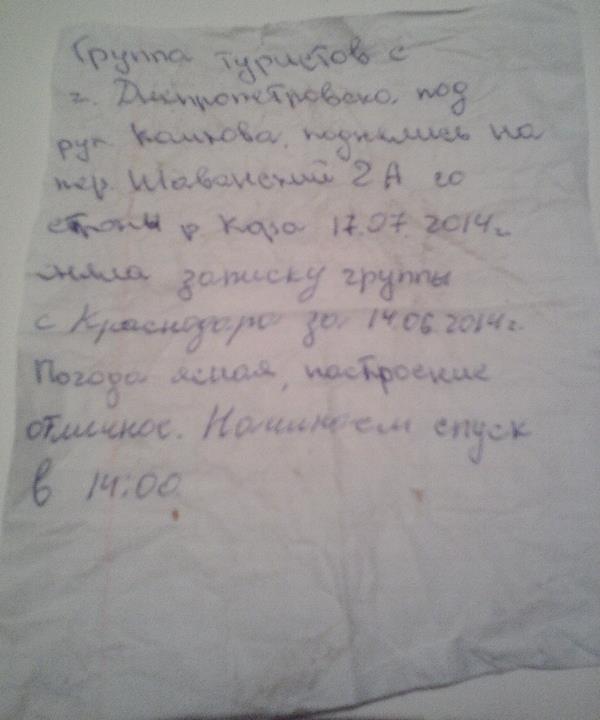 Группа туристов с
г. Днепропетровска, под
рук. поднялись на
пер. Шаванский 2А со
стороны р. Каза 17.07.2014г.
сняла записку группы
с Краснодара за 14.06.2014г.
Погода ясная, настроение
отличное. Начинаем спуск
в 14:00